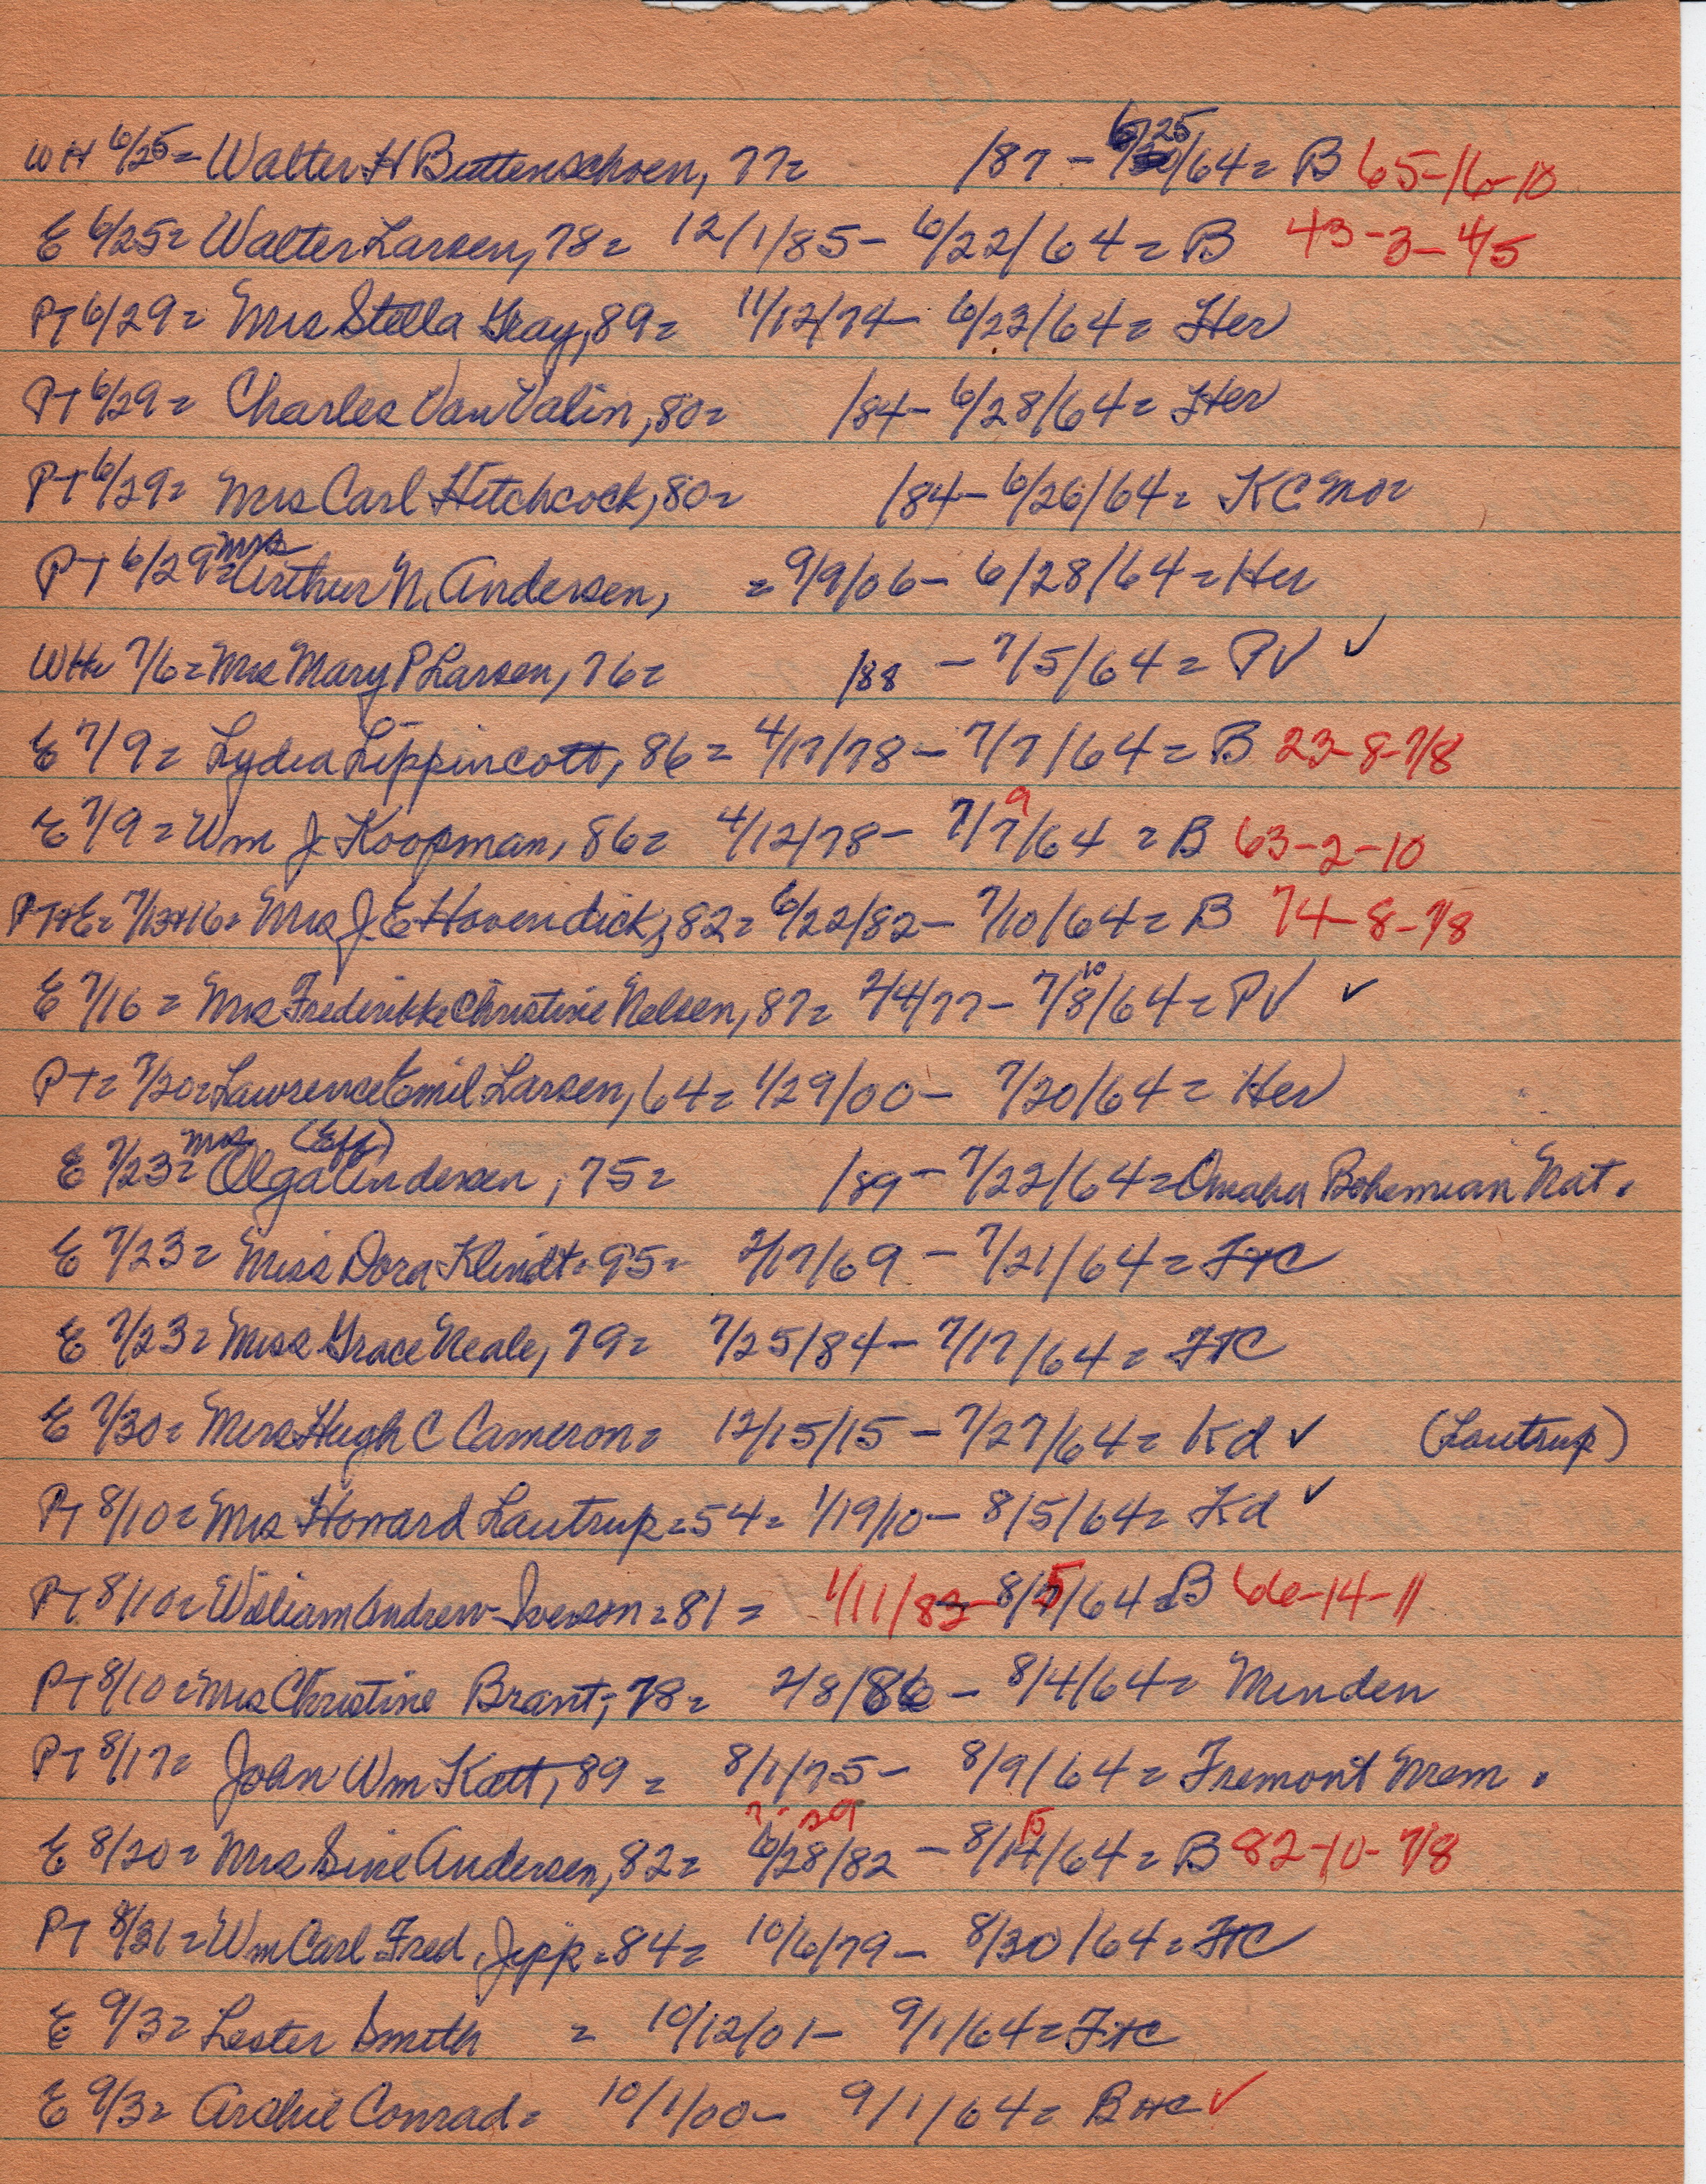 WH 6/25= Walter H Buttenschoen, 77= /87 - 6/25/64= B 65-16-10
E 6/25= Walter Larsen, 78= 12/1/85- 6/22/64= B 43-3-4/5
PT 6/29= Mrs Stella Gray, 89= 11/12/74- 6/23/64= Her
PT 6/29= Charles Van Valin, 80= /84- 6/28/64= Her
PT 6/29= Mrs Carl Hitchcock, 80= /84- 6/26/64= KC Mo=
PT 6/29= Mrs Arthur N. Andersen, = 9/9/06- 6/28/64= Her
WH 7/6= Mrs Mary P Larsen, 76= /88 - 7/5/64= PV ✓
E 7/9= Lydia Lippincott, 86= 4/17/78- 7/7/64= B 23-8-7/8
E 7/9= Wm J. Koopman, 86= 4/12/78- 7/7/64 = B 63-2-10
9
PT+E= 7/13+16= Mrs J. E Hovendick, 82= 6/22/82- 7/10/64= B 74-8-7/8
E 7/16= Mrs Frederikke Christine Nelsen, 87= 2/4/77- 7/8/64= PV ✓
10
PT= 7/20= Lawrence Emil Larsen, 64= 1/29/00- 7/20/64= Her
E 7/23= Mrs Olga (Eff) Andersen, 75= /89- 7/22/64= Omaha Bohemian Nat.
E 7/23= Miss Dora Klindt= 95= 2/17/69 - 7/21/64= FTC
E 7/23= Miss Grace Neale, 79= 7/25/84- 7/17/64= FTC
E 7/30= Mrs Hugh C Cameron= 12/15/15- 7/27/64= Kd ✓ (Lautrup)
PT 8/10= Mrs Howard Lautrup=54= 1/19/10- 8/5/64= Kd ✓
PT 8/10= William Andrew Iverson=81= 1/11/83- 8/5/64=B 66-14-11
PT 8/10= Mrs Christine Brant, 78= 2/8/86- 8/4/64= Minden
PT 8/17= John Wm Katt, 89= 8/1/75- 8/9/64= Fremont Mem.
7-29 15
E 8/20= Mrs Sine Andersen, 82= 6/28/82 - 8/14/64= B 82-10-7/8
PT 8/31= Wm Carl Fred Jipp=84= 10/6/79- 8/30/64= FTC
E 9/3= Lester Smith = 10/12/01- 9/1/64= FTC
E 9/3= Archie Conrad= 10/1/00- 9/1/64= B ✓